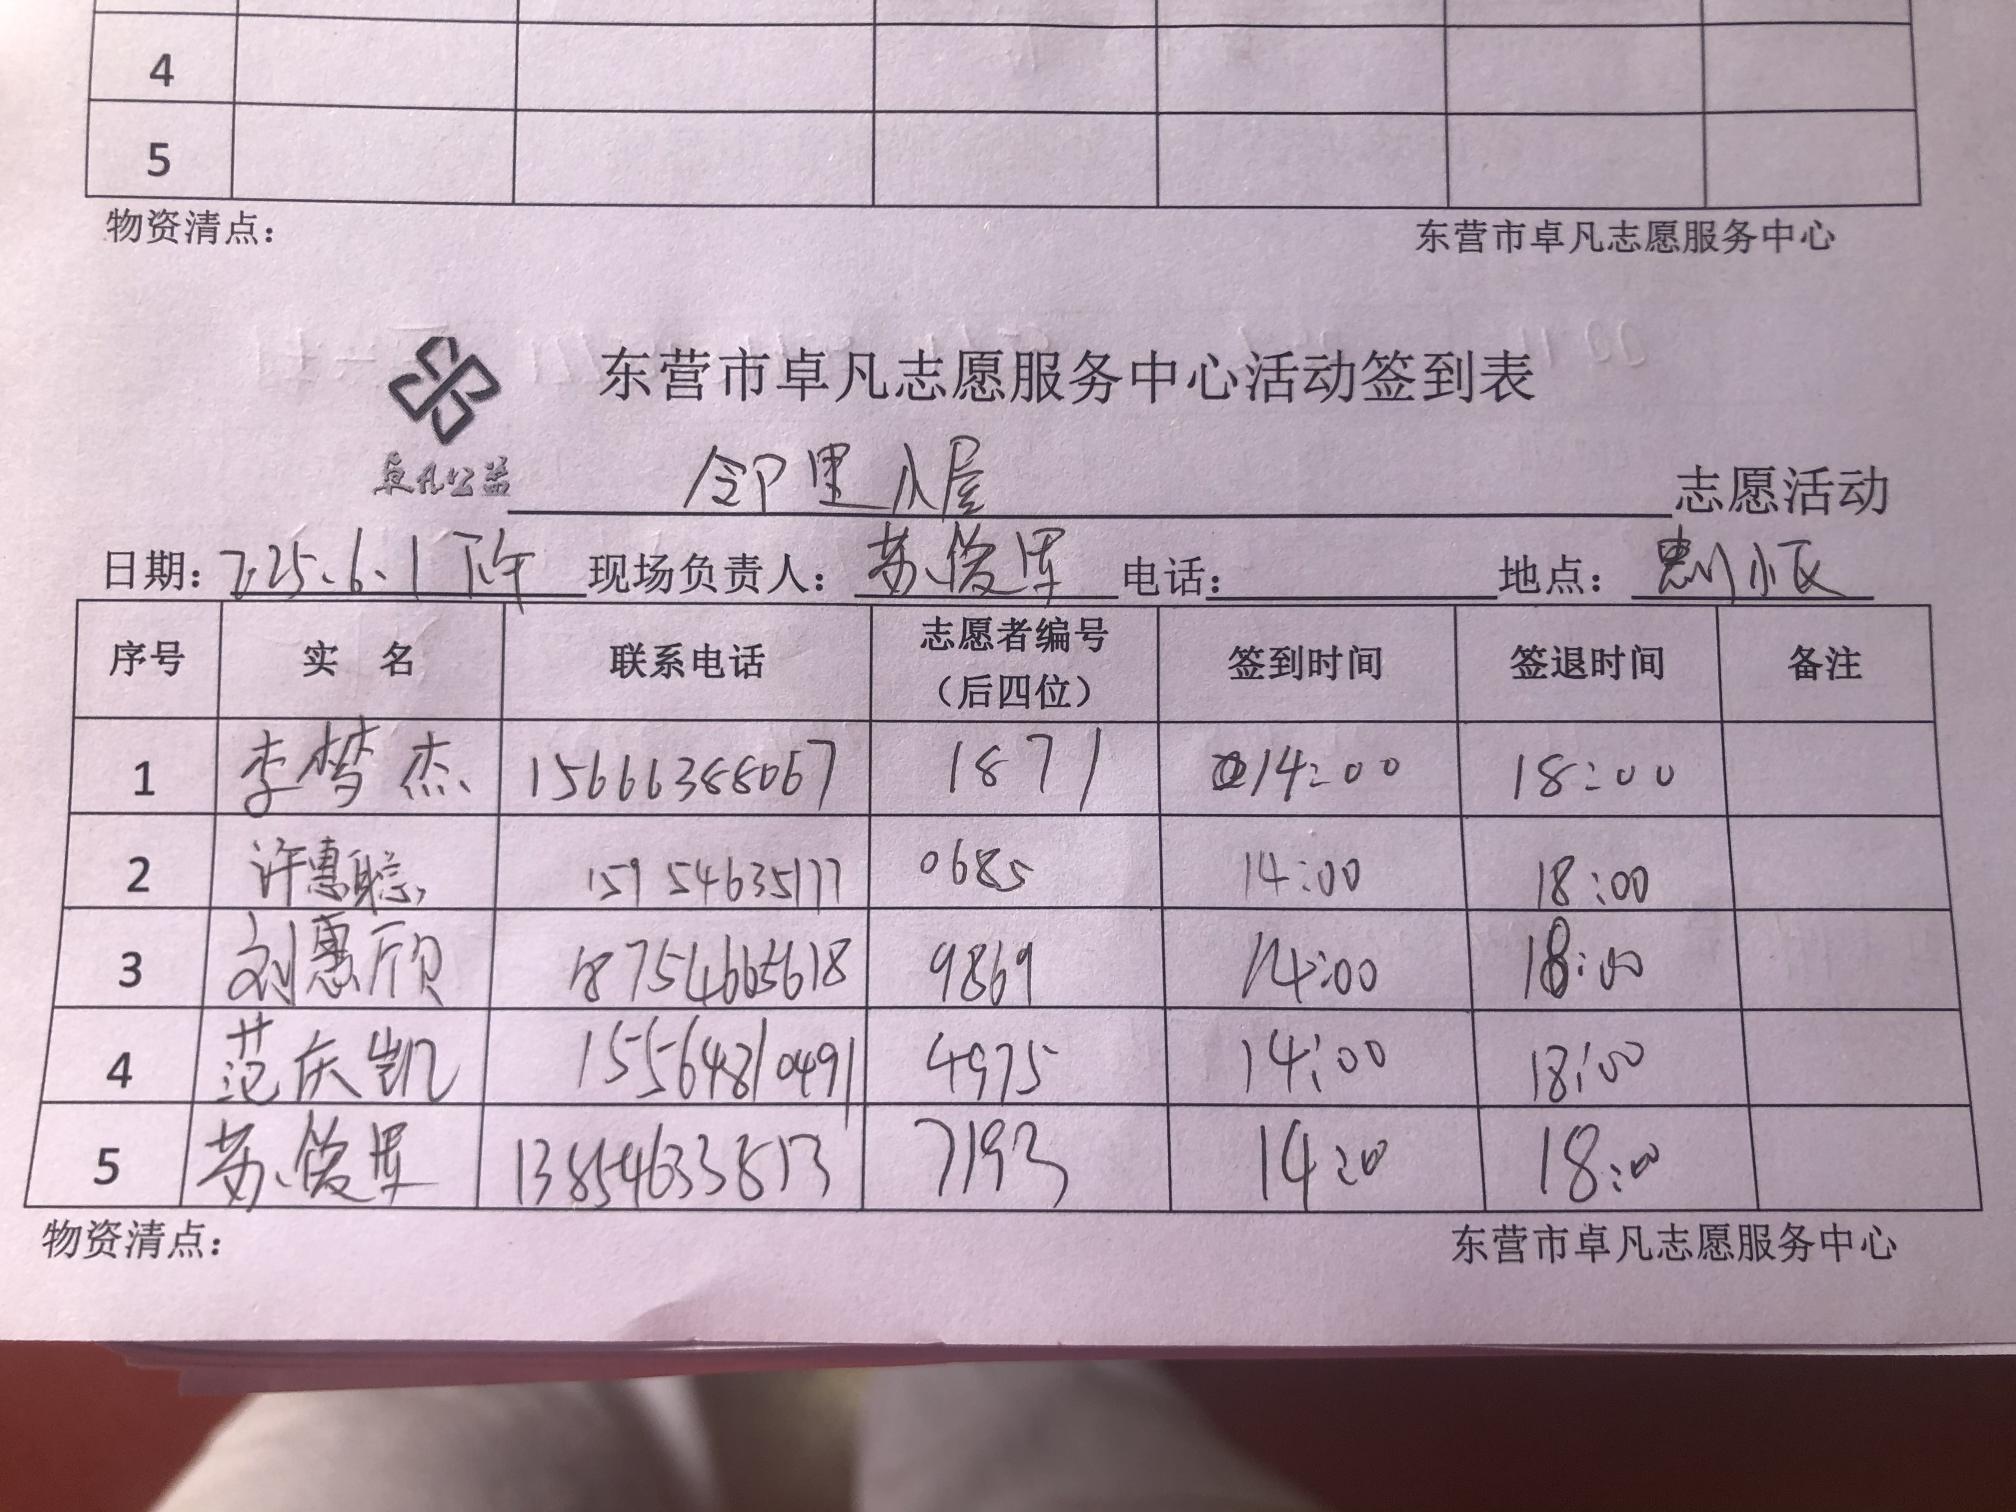 4
5
物资清点： 东营市卓凡志愿服务中心
东营市卓凡志愿服务中心活动签到表
卓凡公益
邻里小屋 志愿活动
日期：2.25.6.1下午 现场负责人：苏俊军 电话： 地点：惠州小区
序号 实 名 联系电话 志愿者编号（后四位） 签到时间 签退时间 备注
1 李梦杰 15666388067 1871 14:00 18:00
2 许惠聪 15954635177 0685 14:00 18:00
3 刘惠欣 18754665618 9869 14:00 18:00
4 范庆凯 15564810491 4975 14:00 18:00
5 苏俊军 13854633813 7193 14:00 18:00
物资清点： 东营市卓凡志愿服务中心